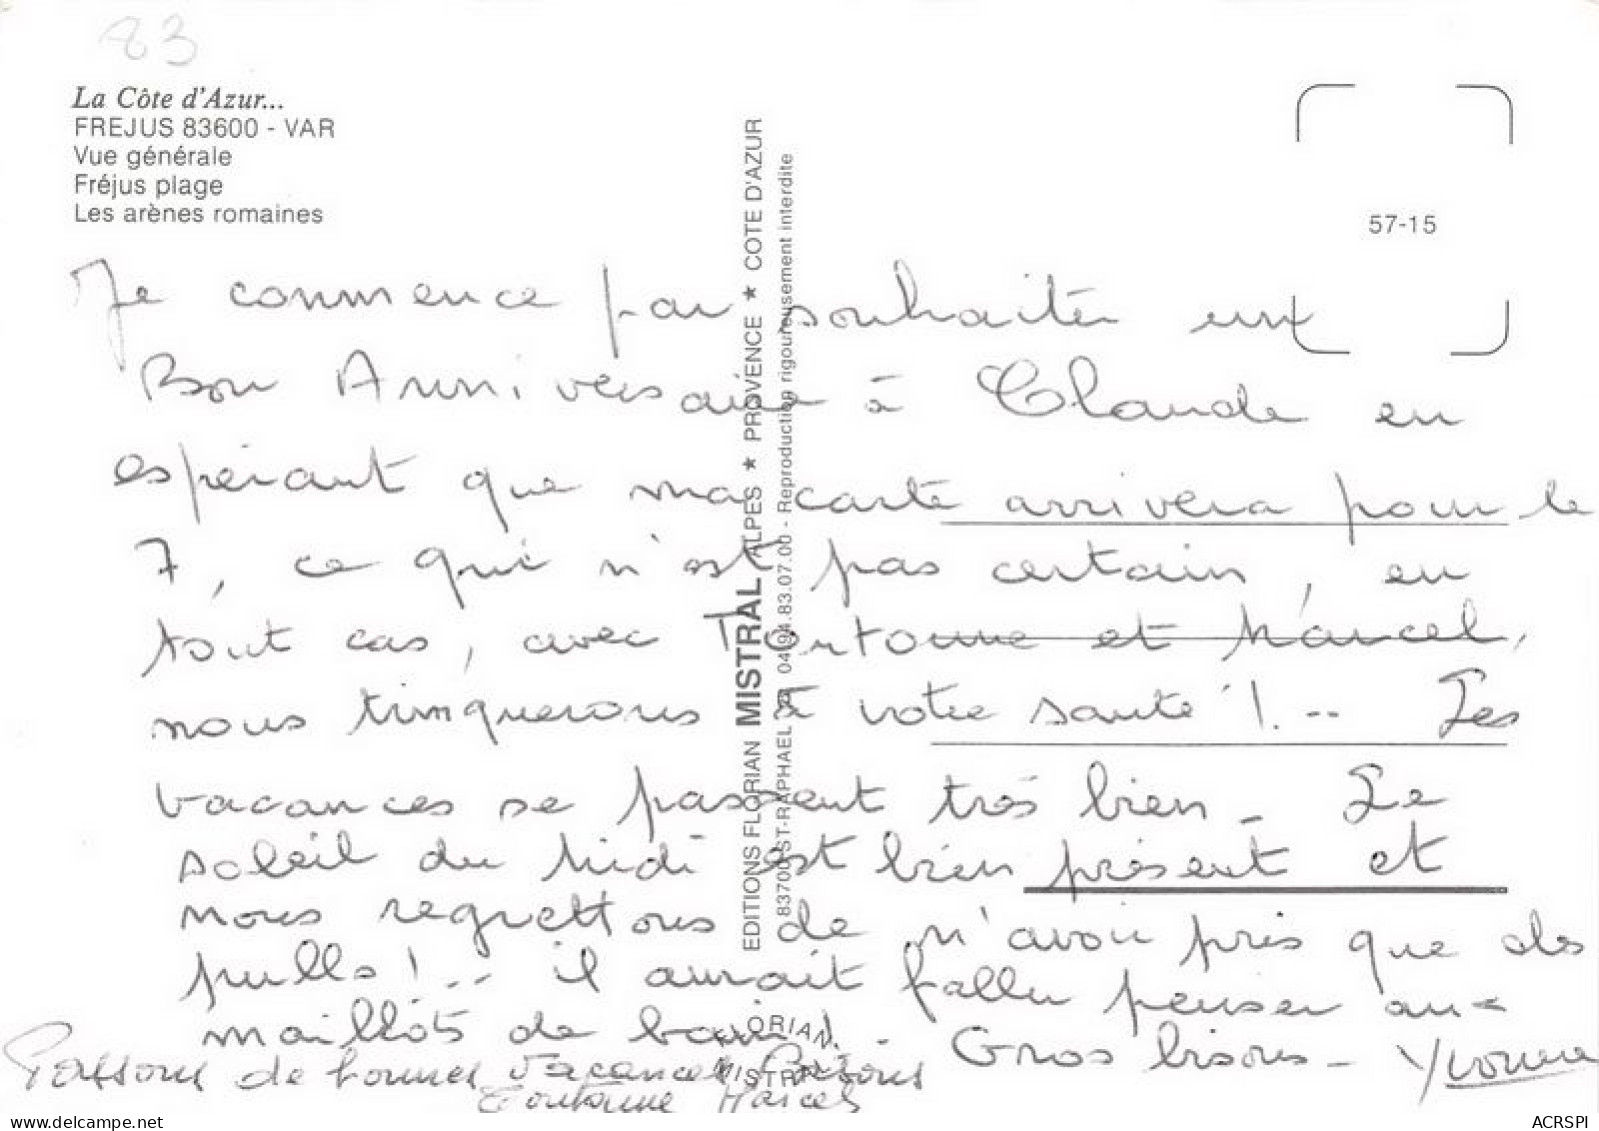 83
La Côte d'Azur...
FREJUS 83600 - VAR
Vue générale
Fréjus plage
Les arènes romaines
57-15
Je commence par souhaiter un
Bon Anniversaire à Claude en
espérant que ma carte arrivera pour le
7, ce qui n'est pas certain, en
tout cas, avec Tontonne et Marcel,
nous trinquerons à votre santé !.--  Les
vacances se passent très bien - Le
soleil du Midi est bien présent et
nous regrettons de n'avoir pris que des
pulls !.. il aurait fallu penser aux
maillots de bain !
Gros bisous - Yvonne
Passons de bonnes vacances Bisous
Tontonne Marcel
EDITIONS FLORIAN MISTRAL ALPES ★ PROVENCE ★ COTE D'AZUR
83700 ST-RAPHAEL 04.94.83.07.00 - Reproduction rigoureusement interdite
FLORIAN
MISTRAL
delcampe.net
ACRSPI